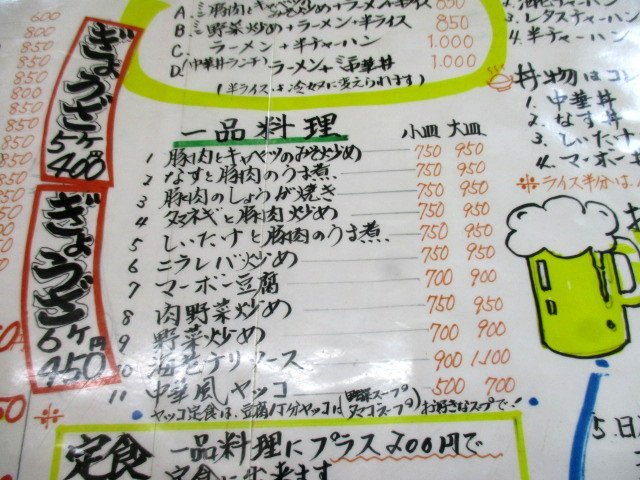 A. ミニ豚肉とキャベツのみそ炒め+ラーメン+半ライス 850
B. ミニ野菜炒め+ラーメン+半ライス 850
C. ラーメン+半チャーハン 1.000
D. (中華丼ランチ)ラーメン+ミニ中華丼 1.000
(半ライス→冷奴に変えられます)
ぎょうざ
5ヶ
400円
ぎょうざ
6ヶ
450円
一品料理 小皿 大皿
1 豚肉とキャベツのみそ炒め 750 950
2 なすと豚肉のうま煮 750 950
3 豚肉のしょうが焼き 750 950
4 タマネギと豚肉炒め 750 950
5 しいたけと豚肉のうま煮 750 950
6 ニラレバ炒め 750 950
7 マーボー豆腐 700 900
8 肉野菜炒め 750 950
9 野菜炒め 700 900
10 海老チリソース 900 1.100
11 中華風ヤッコ 500 700
ヤッコ定食は、豆腐1丁分ヤッコは(野菜スープ タマゴスープ)お好きなスープで!
定食
一品料理にプラス200円で
定食に出来ます
3. レタスチャーハン
4. 半チャーハン
丼物は
1. 中華丼
2. なす丼
3. しいたけ
4. マーボー
※ライス半分は
5. 日